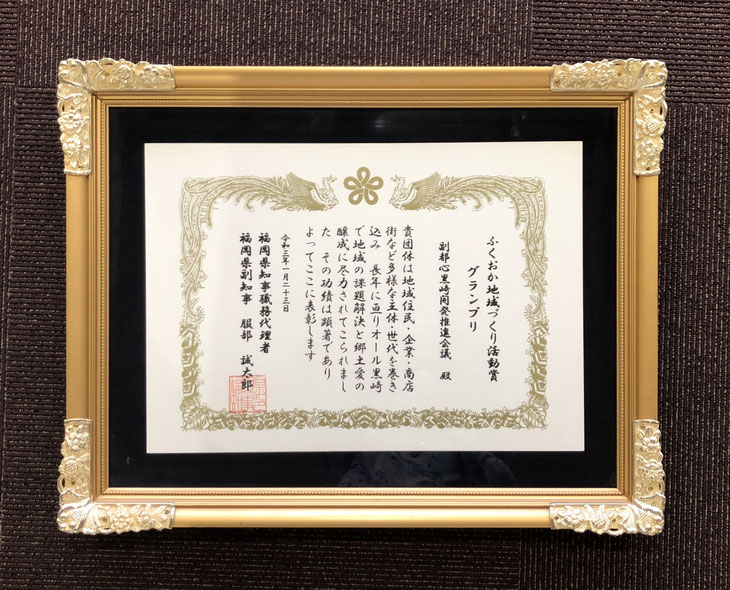 ふくおか地域づくり活動賞
グランプリ
副都心黒崎開発推進会議 殿
貴団体は地域住民・企業・商店
街など多様な主体・世代を巻き
込み 長年に亘りオール黒崎
で地域の課題解決と郷土愛の
醸成に尽力されてこられまし
た その功績は顕著であり
よってここに表彰します
令和三年一月二十三日
福岡県知事職務代理者
福岡県副知事 服部 誠太郎